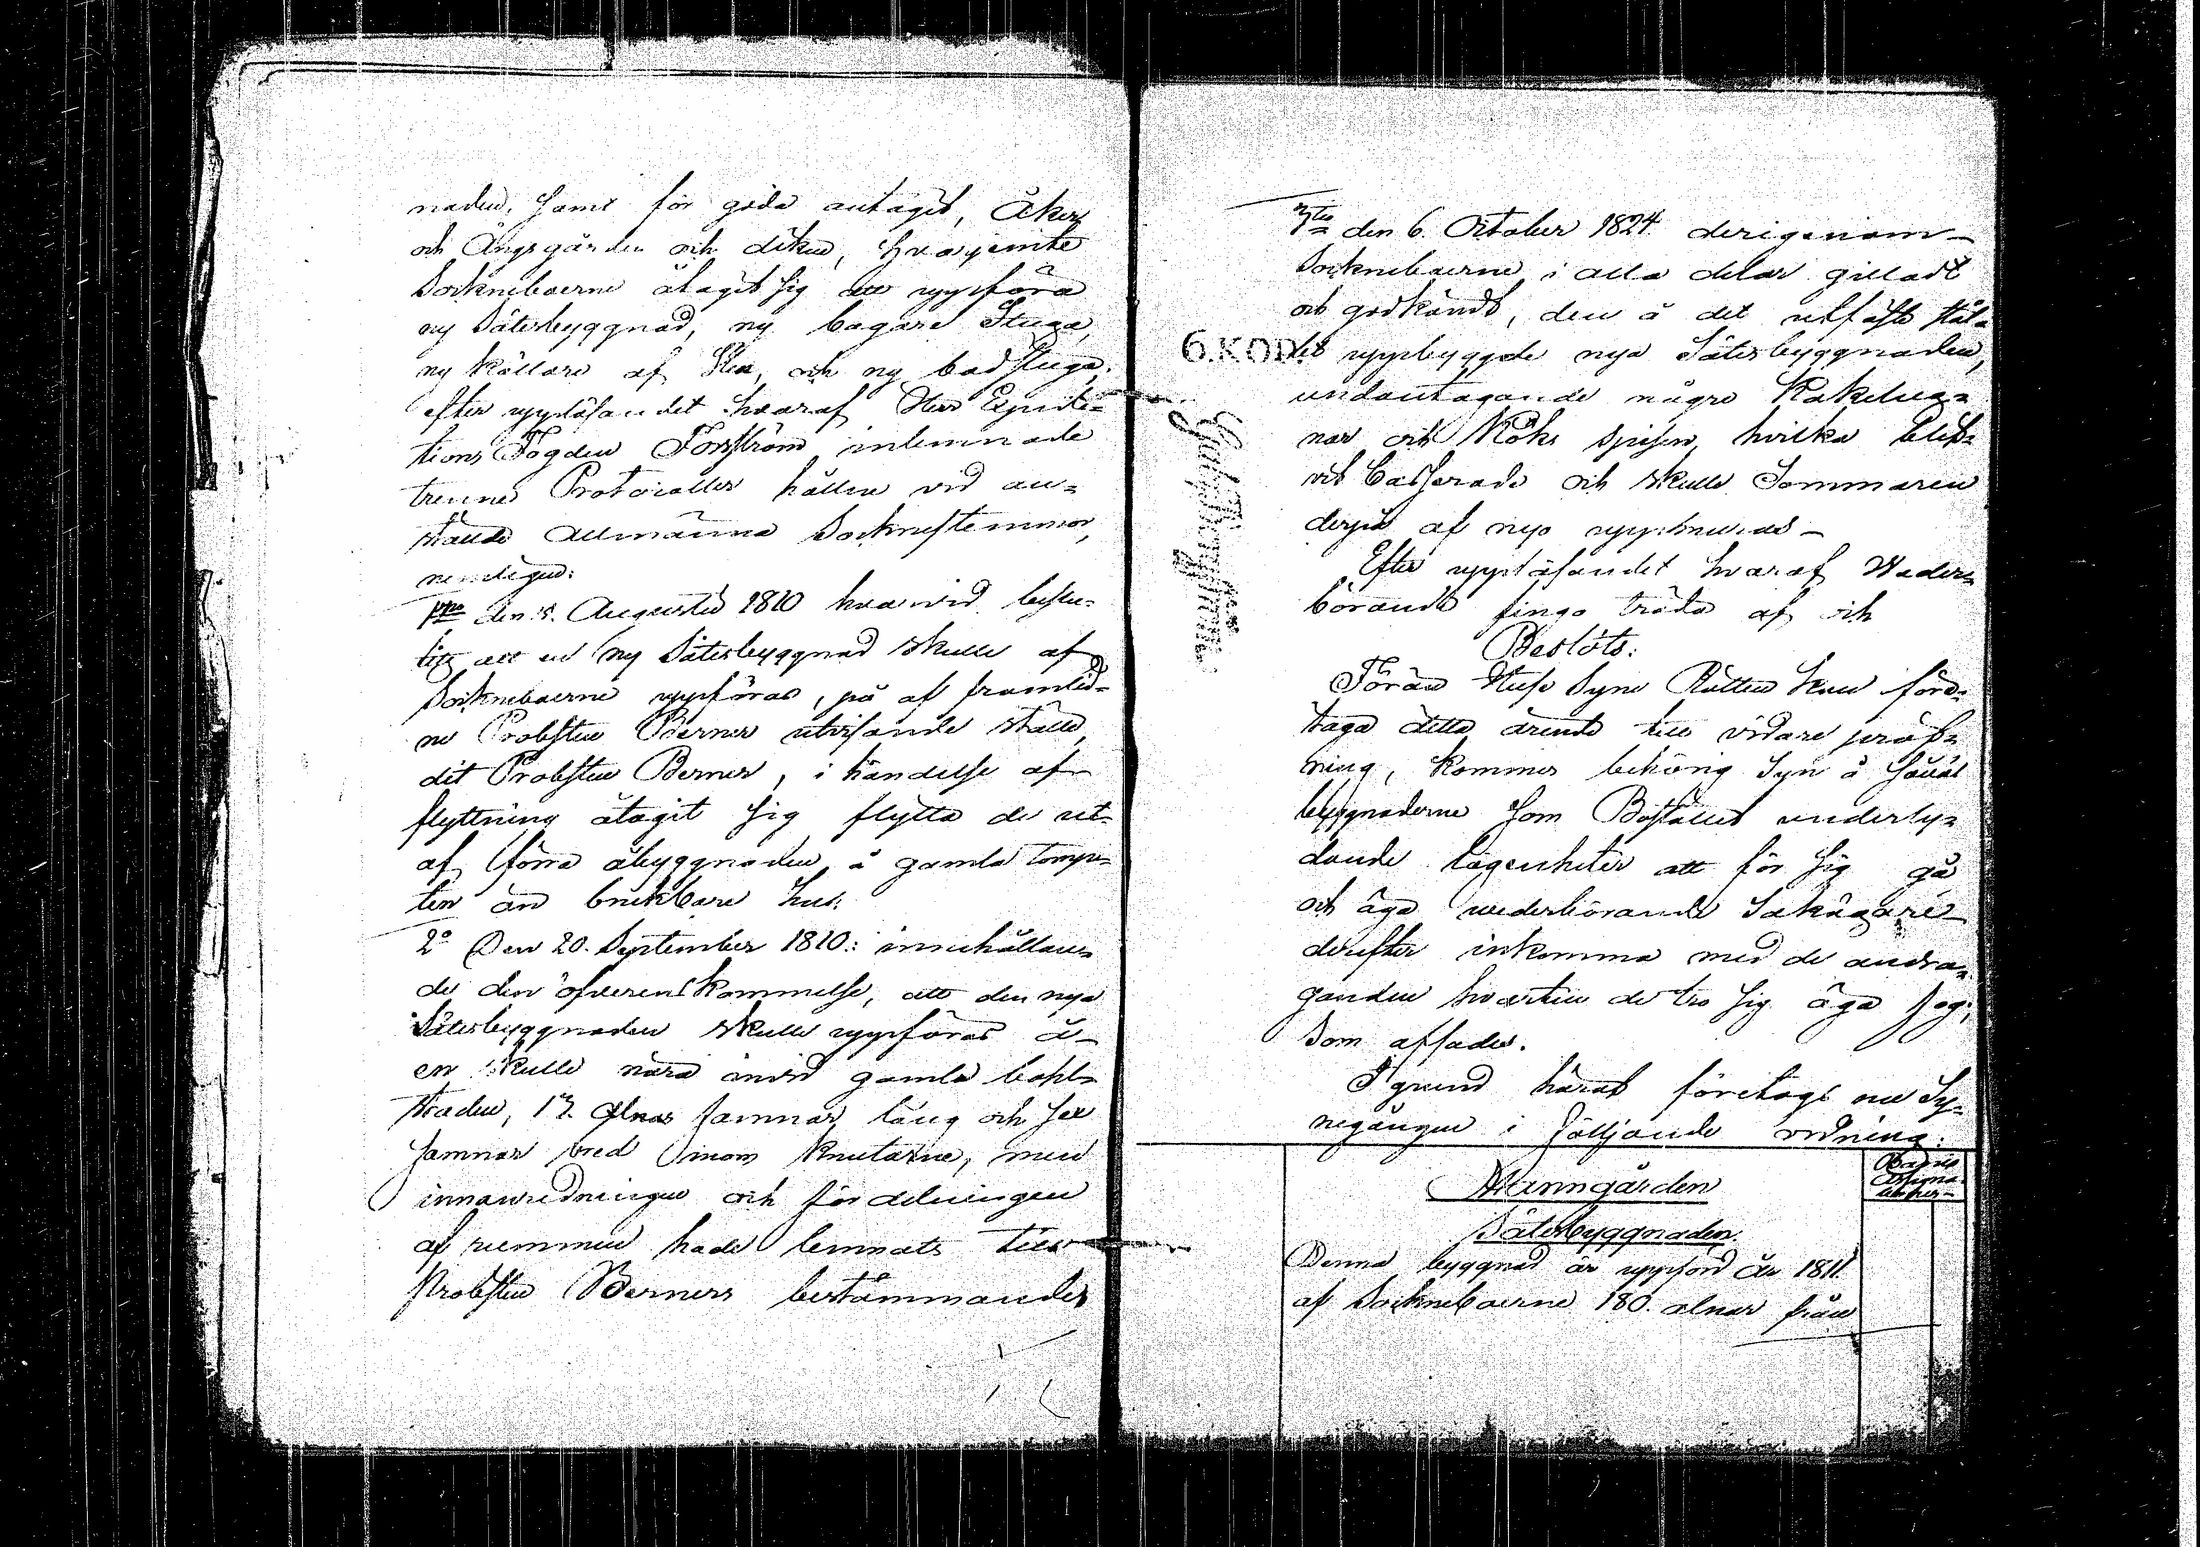 naden, samt för goda antagit, Åker
och Ängsgärden och diken, hvarjemte
Sockneboerne åtagit sig att uppföra
ny Säteribyggnad, ny bagare Stuga,
ny källare af Sten, och ny badstuga,
efter uppläsandet hvaraf Herr Expedi-
tions Fogden Forsström inlemnade
trenne Protocoller hållne vid an-
stälde allmänna Socknestemmor,
nemligen:
1mo den 5. Augusti 1810 hvarvid beslu-
tits att en ny Säteribyggnad skulle af
Sockneboerne uppföras, på af framlid-
ne Probsten Berner utvisande ställe,
dit Probsten Berner, i händelse af
flyttning åtagit sig flytta de ut-
af förra åbyggnaden å gamla tomp-
ten än brukbare hus.
2o Den 20. September 1810: innehållan-
de den öfverenskommelse, att den nya
Säteribyggnaden skulle uppföras å
en kulle nära invid gamla bohl-
staden, 13. alnar famnar lång och sex
famnar bred inom knutarne, men
innanredningen och fördelningen
af rummen hade lemnats till
Probsten Berners bestämmande
3tio den 6. October 1824 derigenom
Socknebоerne i alla delar gilladt
och godkändt, den å det utfäste stäl-
let uppbyggde nya Säteribyggnaden,
undantagande några Kakelug-
nar och Köks spisen, hvilka blif-
vit casserade och skulle Sommaren
derpå af nyo uppmuras
Efter uppläsandet hvaraf Weder-
börande fingo träda af och
Beslöts:
Förän Huse Syne Rätten kan före-
taga detta ärende till vidare pröf-
ning, kommer behörig Syn å såväl
byggnaderne som Boställets underly-
dande lägenheter att för sig gå
och äga wederbörande Sakägare
derefter inkomma med de andra-
ganden hvartill de tro sig äga fog;
Som afsades.
I grund häraf företogs nu Sy-
negången i följande ordning:
Manngården
Säteribyggnaden.
Denna byggnad är uppförd år 1811.
af Socknebоerne 180. alnar från
6. KOP.